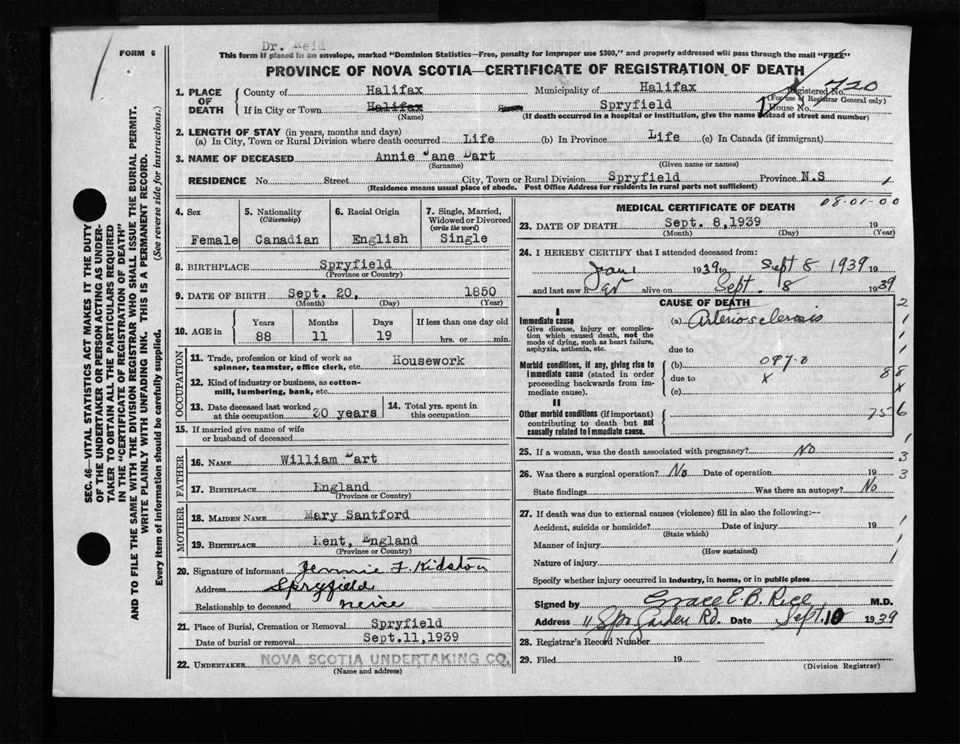 FORM 6
Dr. Reid
This form if placed in an envelope, marked "Dominion Statistics—Free, penalty for improper use $300," and properly addressed will pass through the mail "FREE"
PROVINCE OF NOVA SCOTIA—CERTIFICATE OF REGISTRATION OF DEATH
1. PLACE OF DEATH
County of Halifax Municipality of Halifax Registered No. 720
(For use of Registrar General only)
If in City or Town Halifax Spryfield House No.
(Name) (If death occurred in a hospital or institution, give the name instead of street and number)
2. LENGTH OF STAY (in years, months and days)
(a) In City, Town or Rural Division where death occurred Life (b) In Province Life (c) In Canada (if immigrant)
3. NAME OF DECEASED Annie Jane Dart
(Surname) (Given name or names)
RESIDENCE No. Street City, Town or Rural Division Spryfield Province N.S
(Residence means usual place of abode. Post Office Address for residents in rural parts not sufficient)
4. Sex
Female
5. Nationality
(Citizenship)
Canadian
6. Racial Origin
English
7. Single, Married, Widowed or Divorced
(write the word)
Single
8. BIRTHPLACE Spryfield
(Province or Country)
9. DATE OF BIRTH Sept. 20, 1850
(Month) (Day) (Year)
10. AGE in
Years Months Days If less than one day old
88 11 19 hrs. or min.
OCCUPATION
11. Trade, profession or kind of work as spinner, teamster, office clerk, etc. Housework
12. Kind of industry or business, as cotton-mill, lumbering, bank, etc.
13. Date deceased last worked at this occupation 20 years
14. Total yrs. spent in this occupation
15. If married give name of wife or husband of deceased
FATHER
16. NAME William Dart
17. BIRTHPLACE England
(Province or Country)
MOTHER
18. MAIDEN NAME Mary Santford
19. BIRTHPLACE Kent, England
(Province or Country)
20. Signature of informant Jennie F. Kidston
Address Spryfield
Relationship to deceased neice
21. Place of Burial, Cremation or Removal Spryfield
Date of burial or removal Sept.11,1939
22. UNDERTAKER NOVA SCOTIA UNDERTAKING CO.
(Name and address)
MEDICAL CERTIFICATE OF DEATH
08-01-00
23. DATE OF DEATH Sept. 8,1939
(Month) (Day) (Year)
24. I HEREBY CERTIFY that I attended deceased from:
Jan 1 1939 to Sept 8 1939 19
and last saw h er alive on Sept. 8 1939
CAUSE OF DEATH
I
Immediate cause (a) Arteriosclerosis
Give disease, injury or complication which caused death, not the mode of dying, such as heart failure, asphyxia, asthenia, etc.
due to
Morbid conditions, if any, giving rise to immediate cause (stated in order proceeding backwards from immediate cause).
(b) 097-0
due to X
(c)
88
X
II
Other morbid conditions (if important) contributing to death but not causally related to immediate cause.
756
25. If a woman, was the death associated with pregnancy? No
26. Was there a surgical operation? No Date of operation 19
State findings Was there an autopsy? No
27. If death was due to external causes (violence) fill in also the following:—
Accident, suicide or homicide? Date of injury 19
(State which)
Manner of injury
(How sustained)
Nature of injury
Specify whether injury occurred in industry, in home, or in public place
Signed by M.D.
Address Spr. Garden Rd. Date Sept. 10 1939
28. Registrar's Record Number
29. Filed 19
(Division Registrar)
SEC. 46—VITAL STATISTICS ACT MAKES IT THE DUTY
OF THE UNDERTAKER OR PERSON ACTING AS UNDER-
TAKER TO OBTAIN ALL THE PARTICULARS REQUIRED
IN THE "CERTIFICATE OF REGISTRATION OF DEATH"
AND TO FILE THE SAME WITH THE DIVISION REGISTRAR WHO SHALL ISSUE THE BURIAL PERMIT.
WRITE PLAINLY WITH UNFADING INK. THIS IS A PERMANENT RECORD.
Every item of information should be carefully supplied. (See reverse side for instructions.)